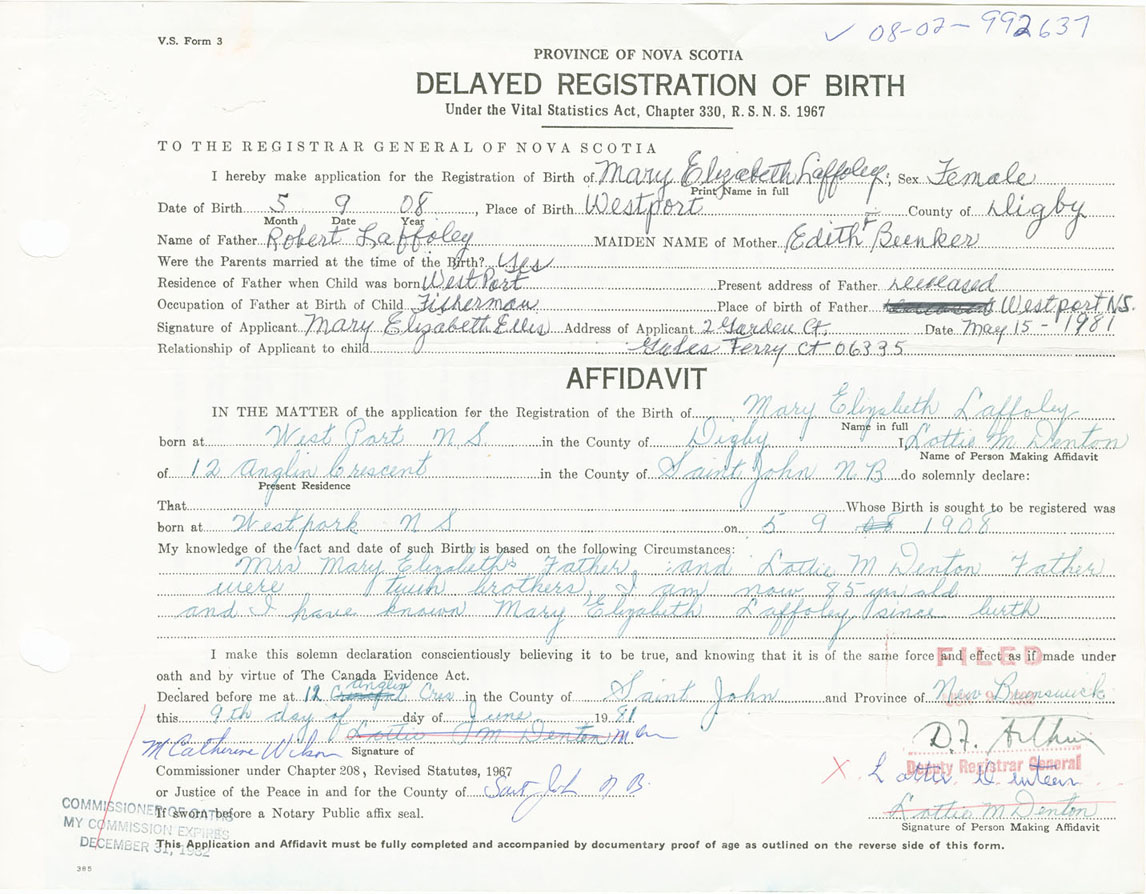 ✓ 08-02-992637
V.S. Form 3
PROVINCE OF NOVA SCOTIA
DELAYED REGISTRATION OF BIRTH
Under the Vital Statistics Act, Chapter 330, R. S. N. S. 1967
TO THE REGISTRAR GENERAL OF NOVA SCOTIA
I hereby make application for the Registration of Birth of Mary Elizabeth Laffoley; Sex Female
Print Name in full
Date of Birth 5 9 08, Place of Birth Westport County of Digby
Month Date Year
Name of Father Robert Laffoley MAIDEN NAME of Mother Edith Beenker
Were the Parents married at the time of the Birth? Yes
Residence of Father when Child was born WestPort Present address of Father Deceased
Occupation of Father at Birth of Child Fisherman Place of birth of Father Westport NS.
Signature of Applicant Mary Elizabeth Ellis Address of Applicant 2 Garden Ct. Date May 15 - 1981
Relationship of Applicant to child Gales Ferry Ct 06335
AFFIDAVIT
IN THE MATTER of the application for the Registration of the Birth of Mary Elizabeth Laffoley
Name in full
born at West Port N S in the County of Digby I, Lottie M Denton
Name of Person Making Affidavit
of 12 Anglin Crescent in the County of Saint John N B do solemnly declare:
Present Residence
That Whose Birth is sought to be registered was
born at Westpork N S on 5 9 08 1908
My knowledge of the fact and date of such Birth is based on the following Circumstances:
Mrs Mary Elizabeth's Father, and Lottie M Denton Father
were twin brothers, I am now 85 yrs old
and I have known Mary Elizabeth Laffoley since birth
I make this solemn declaration conscientiously believing it to be true, and knowing that it is of the same force and effect as if made under
oath and by virtue of The Canada Evidence Act.
FILED
Declared before me at 12 Anglin Cres in the County of Saint John and Province of New Brunswick
this 9th day of day of June 1981
Lottie M Denton
M Catherine Wilson Signature of
D. F. Arthur
Deputy Registrar General
Commissioner under Chapter 208, Revised Statutes, 1967
or Justice of the Peace in and for the County of Saint John N B.
X Lottie
COMMISSIONER OF OATHS
MY COMMISSION EXPIRES
DECEMBER 31, 1982
If sworn before a Notary Public affix seal.
Lottie M Denton
Signature of Person Making Affidavit
This Application and Affidavit must be fully completed and accompanied by documentary proof of age as outlined on the reverse side of this form.
385